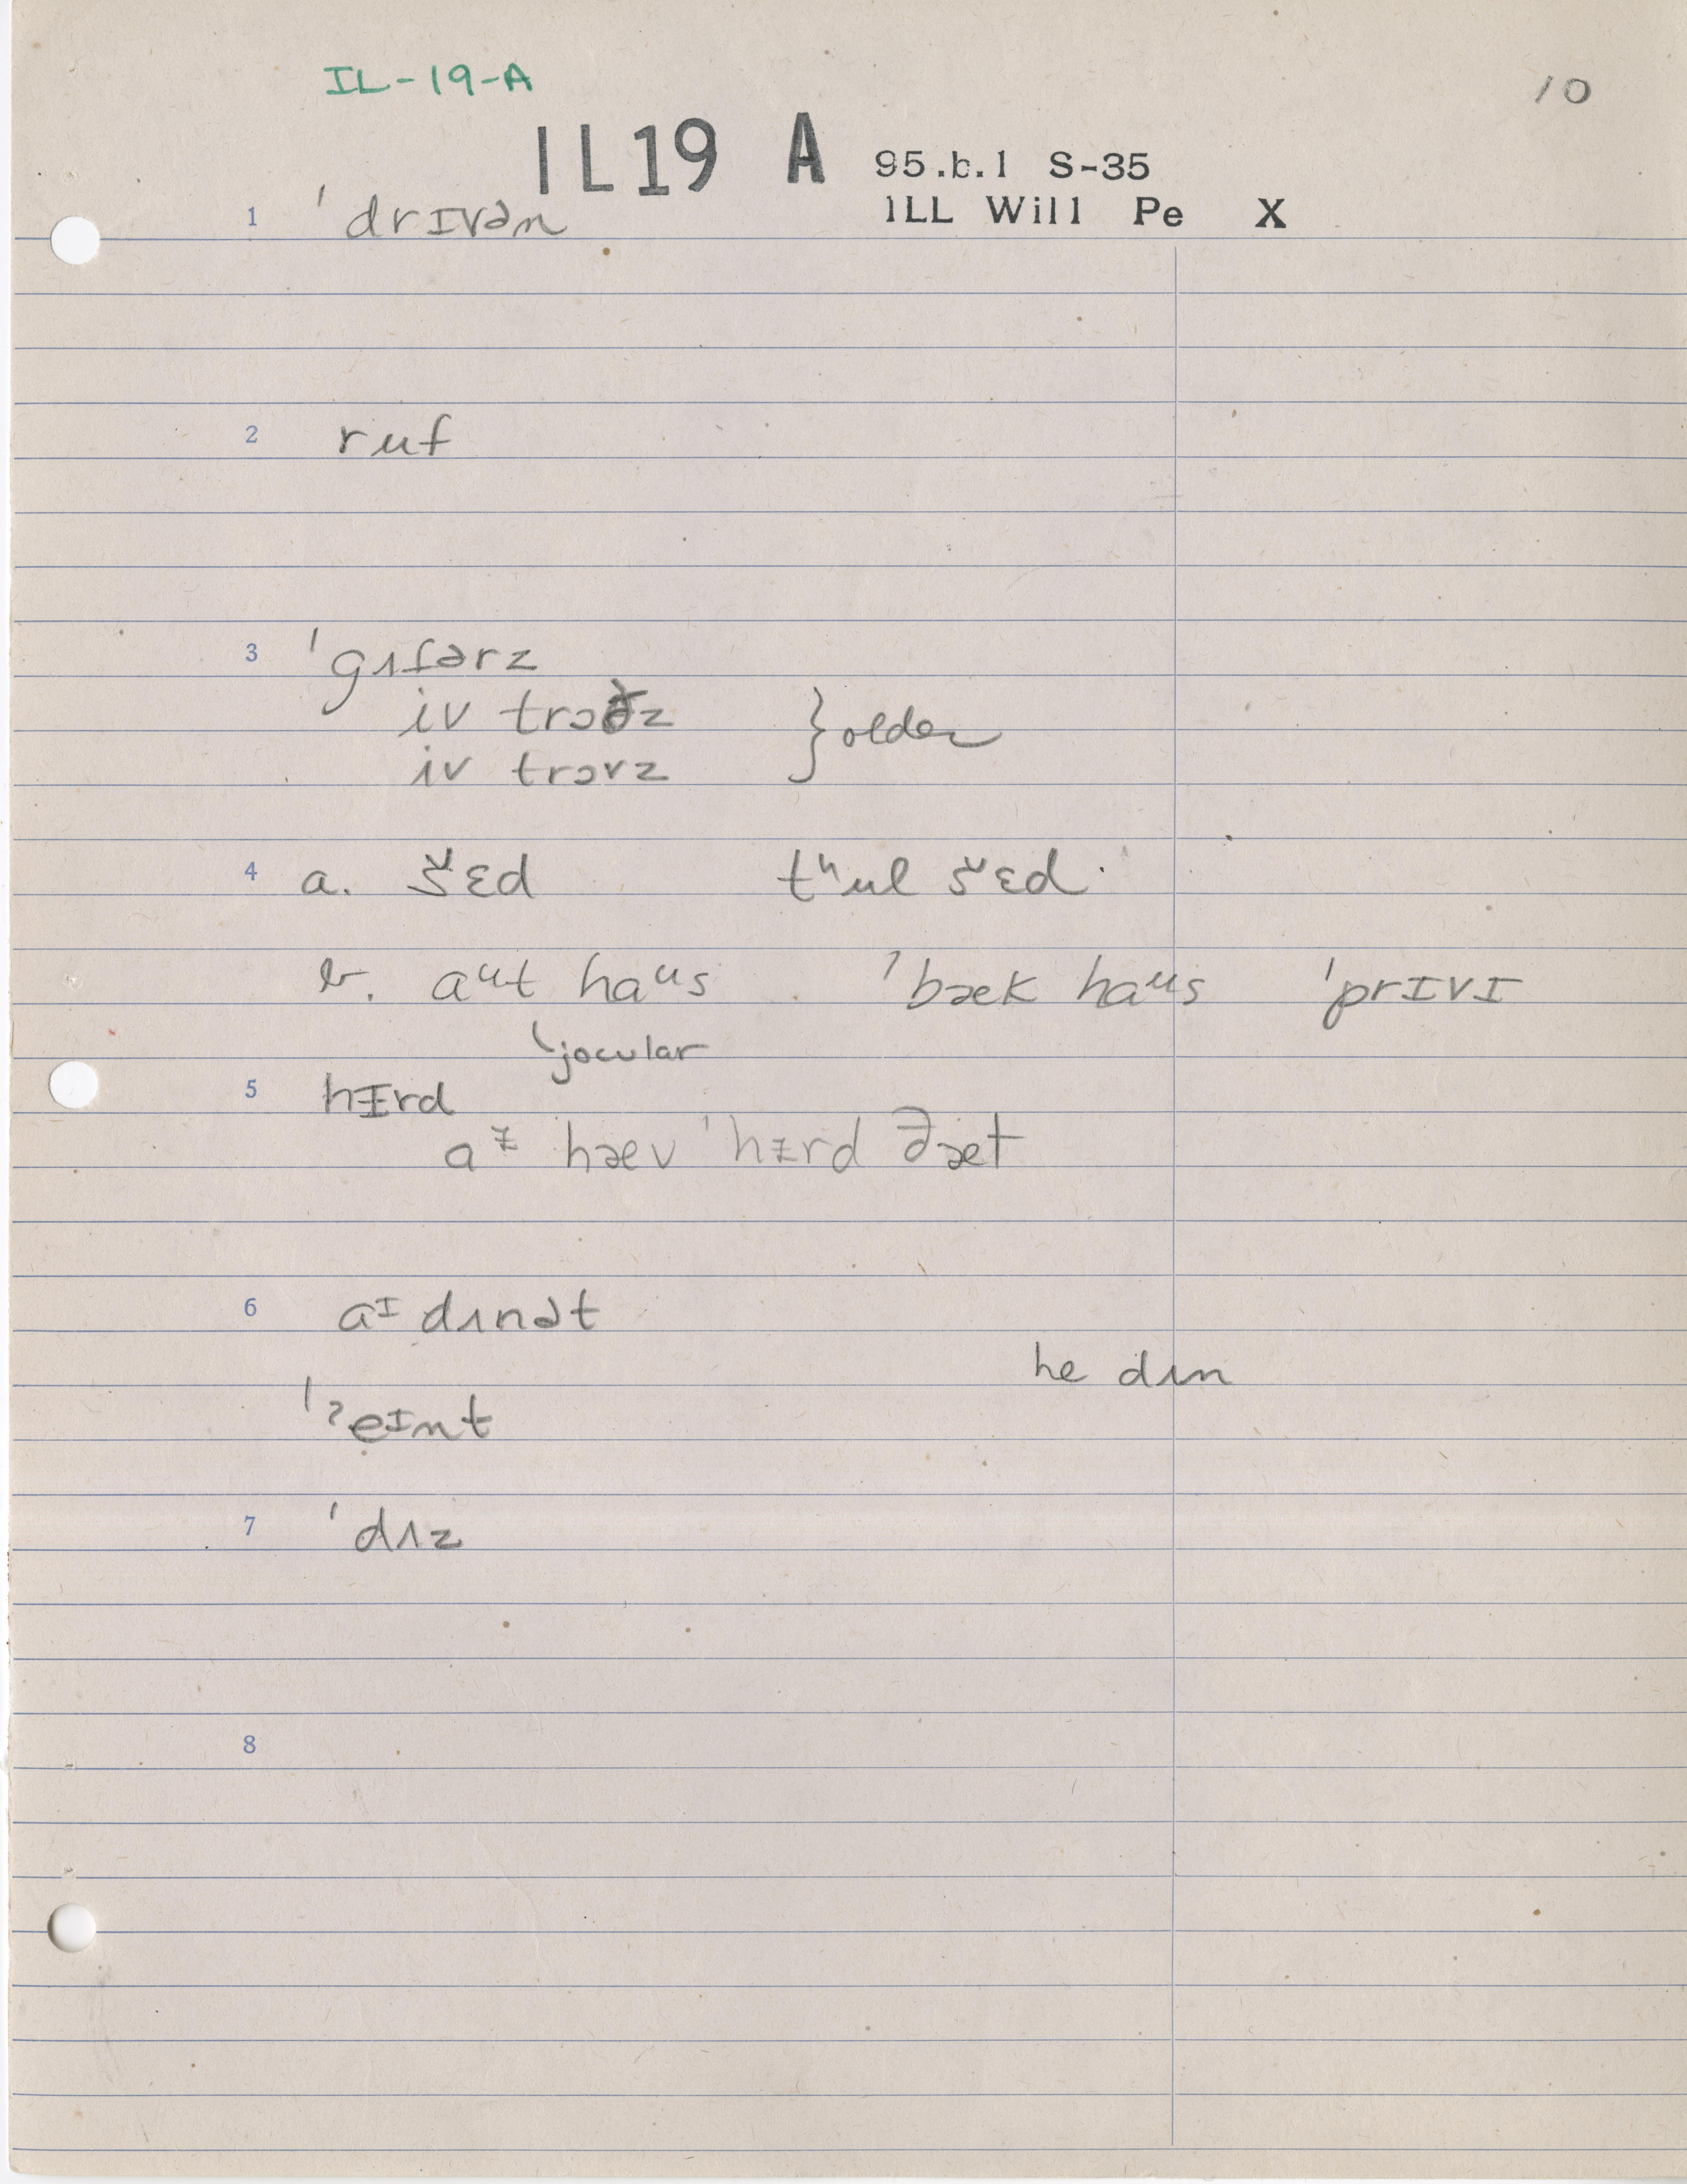 IL-19-A
10
IL19 A 95.b.1 S-35
ILL Will Pe X
1 'drɪvən
2 ruf
3 'gʌfərz
iv trɔðz } older
iv trɔvz
4 a. š̌ɛd tʰul šɛd
b. aᵘt haᵘs 'bæk haᵘs 'prɪvɪ
jocular
5 hɪrd
aᵻ hæv 'hᵻrd ðæt
6 aᶦ dʌnət
he dʌn
'ʔeɪnt
7 'dʌz
8